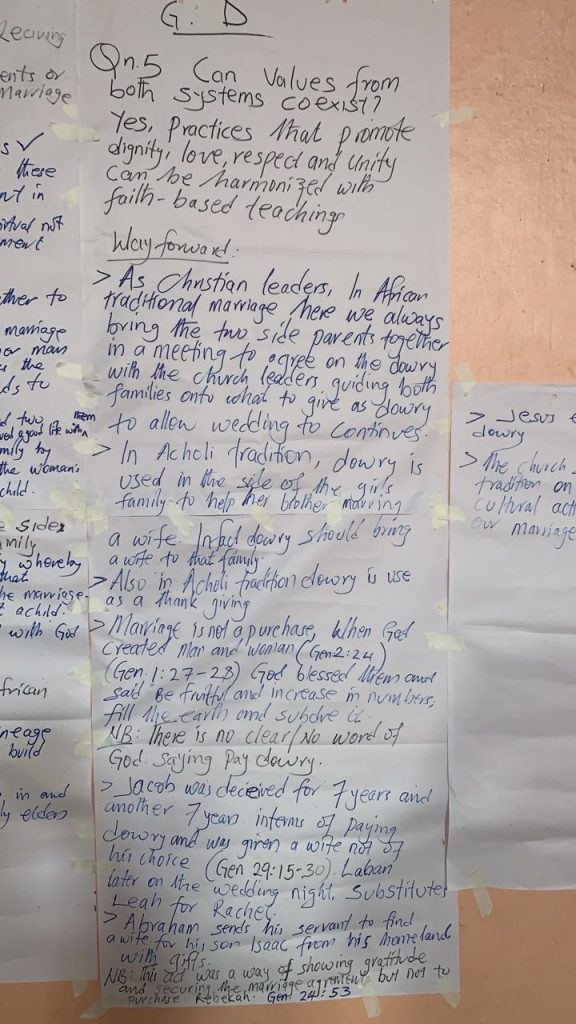 G. D
Qn.5 Can Values from
both systems coexist?
Yes, Practices that promote
dignity, love, respect and Unity
Can be harmonized with
faith-based teachings
Way forward:
> As Christian leaders, In African
traditional marriage here we always
bring the two side parents together
in a meeting to agree on the dowry
with the church leaders, guiding both
families onto what to give as dowry
to allow wedding to continues.
> In Acholi tradition, dowry is
used in the side of the girls
family to help her brother marrying
a wife. Infact dowry should bring
a wife to that family.
> Also in Acholi tradition dowry is use
as a thank giving
> Marriage is not a purchase, When God
created man and woman (Gen 2:24)
(Gen. 1:27-28) God blessed them and
said Be fruitful and increase in numbers;
fill the earth and subdue it.
NB: There is no clear/No word of
God saying pay dowry.
> Jacob was deceived for 7 years and
another 7 years interms of Paying
dowry and was given a wife not of
his choice (Gen 29:15-30). Laban
later on the wedding night, Substitutes
Leah for Rachel.
> Abraham sends his servant to find
a wife for his son Isaac from his homeland
with gifts.
NB: This act was a way of showing gratitude
and securing the marriage agreement but not to
purchase Rebekah. Gen 24:53
Leaving
ents or
Marriage
s ✓
these
nt in
not
ment
ther to
marriage
or man
the
ds to
two them
ved a good life with
mily by
the woman's
child.
sides
family
whereby
that
he marriage.
achild.
with God
frican
ineage
build
in and
ly elders
> Jesus
dowry
> The church
tradition on
cultural acti
our marriage